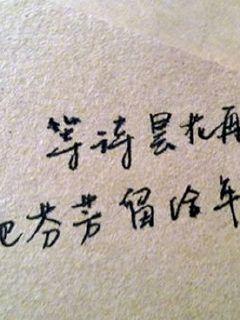 等待昙花再
把芬芳留给年